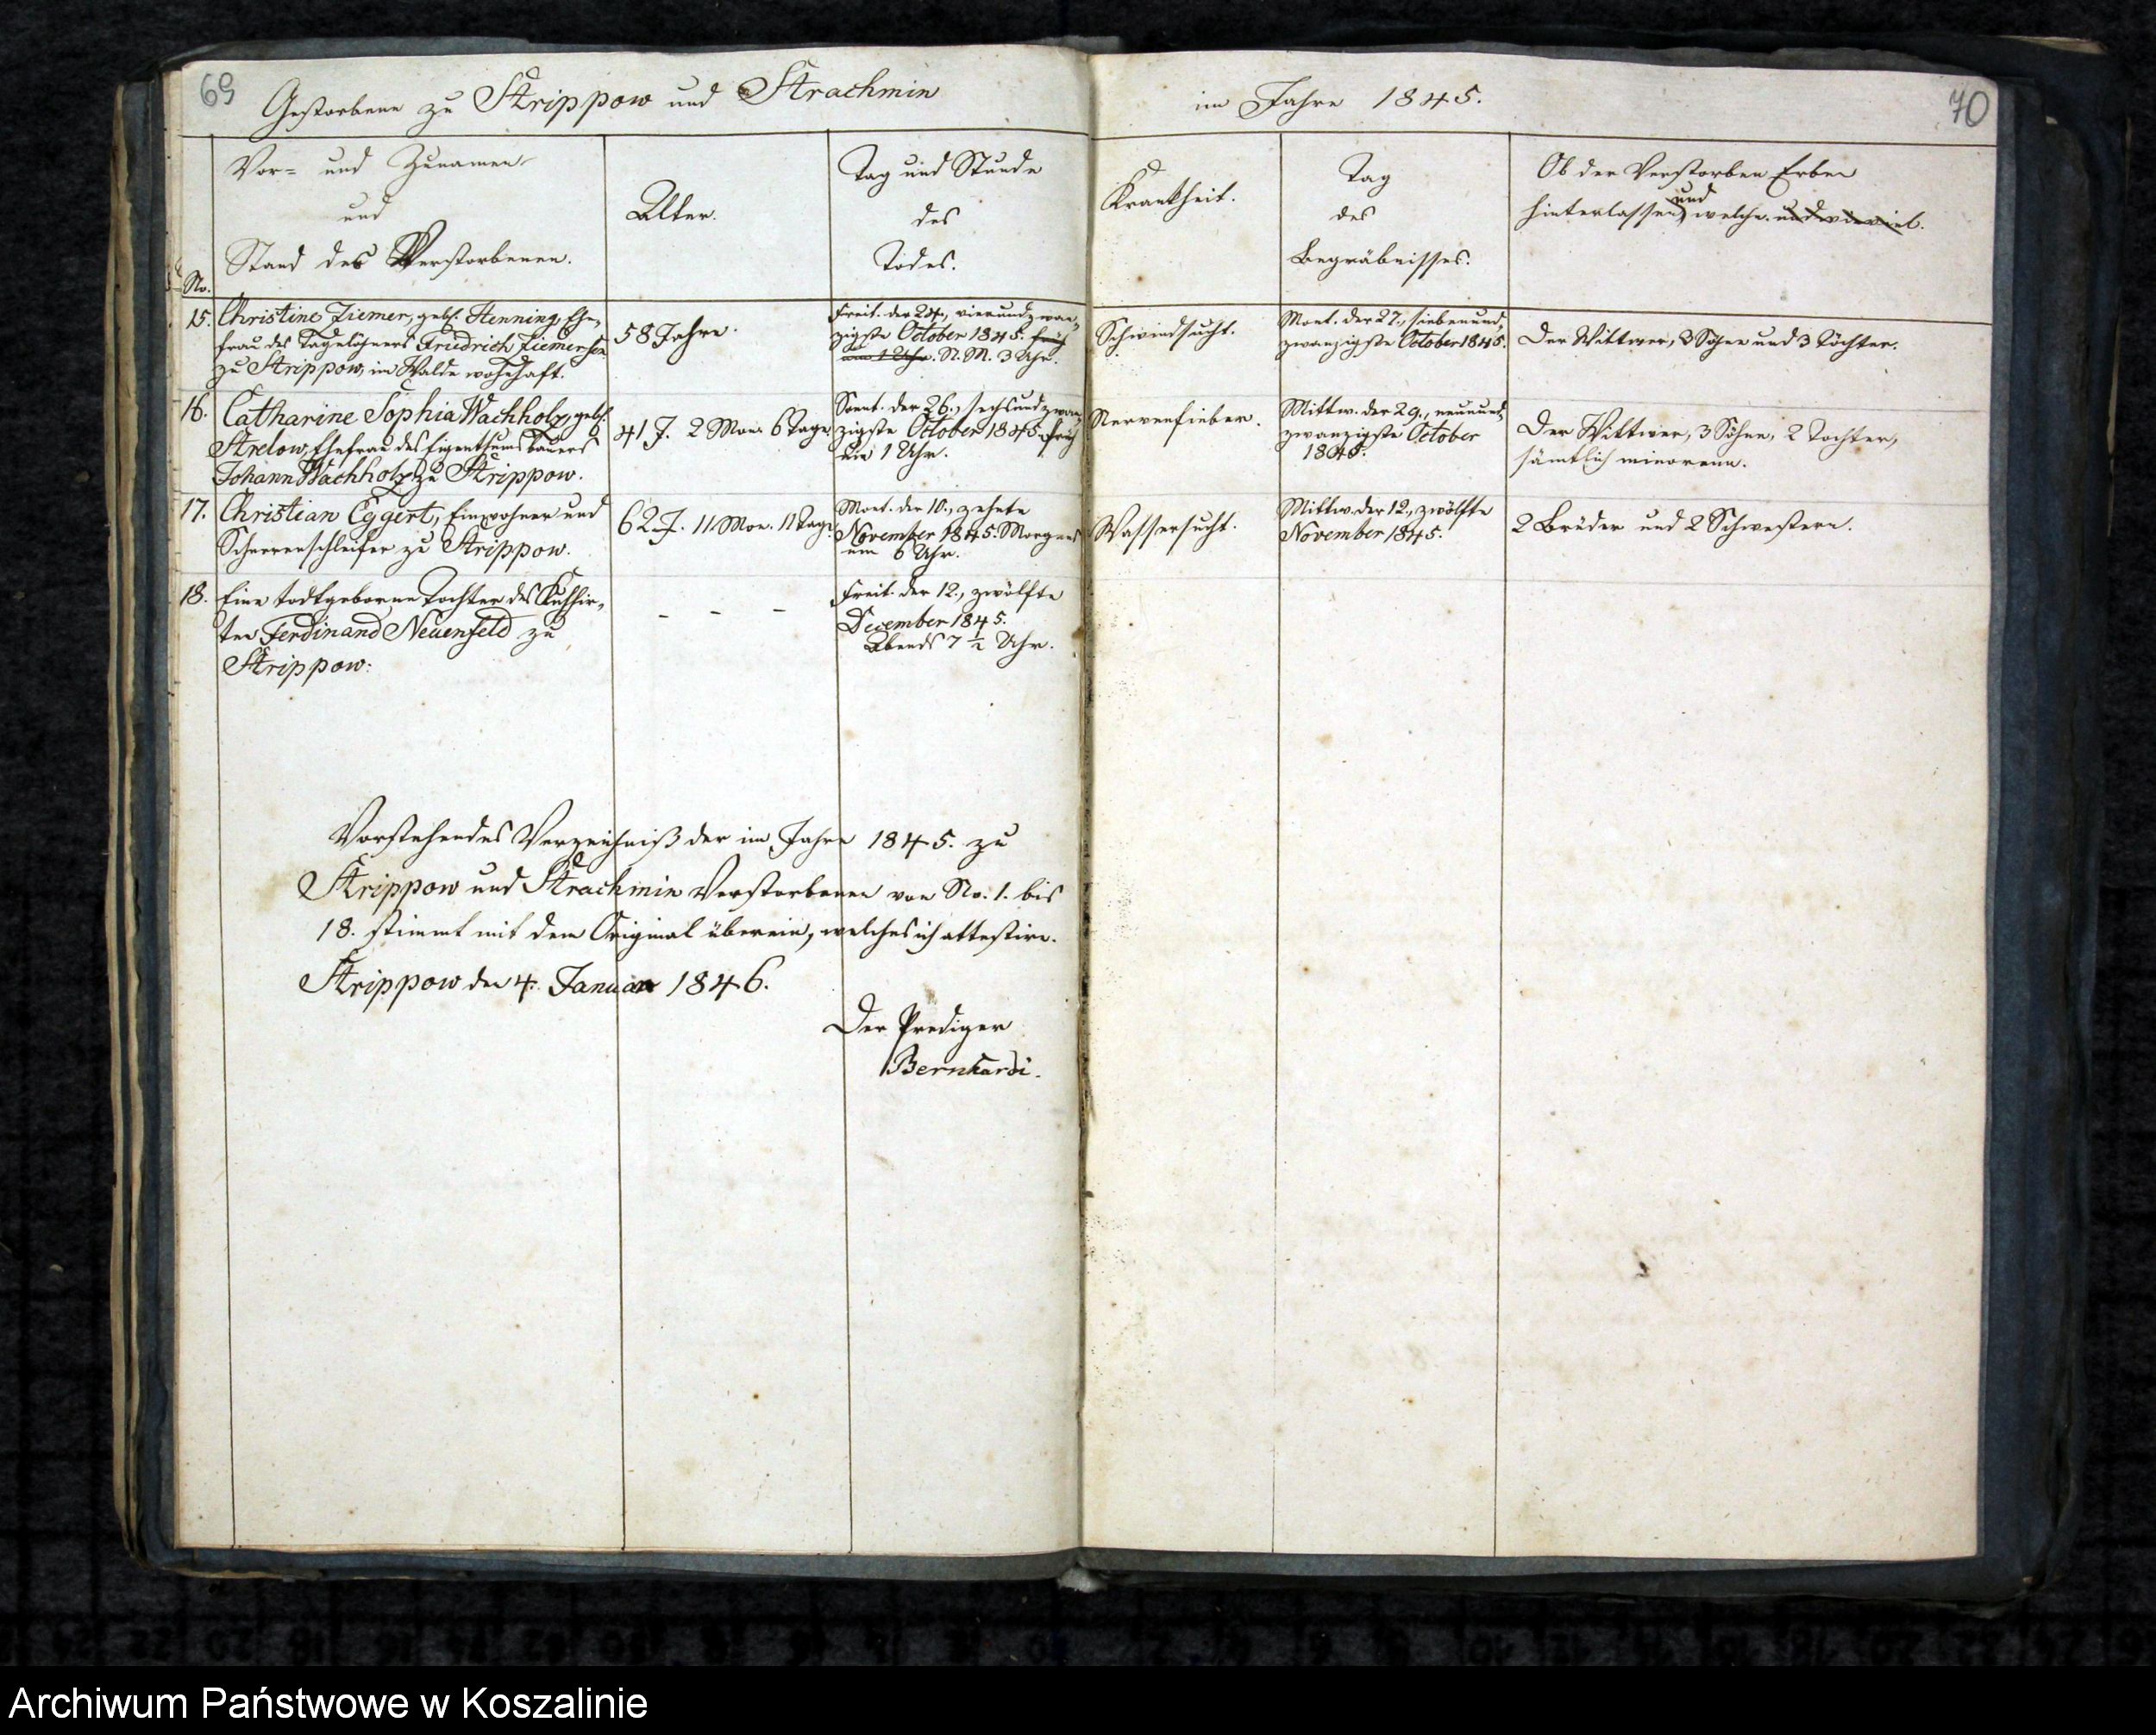 69
Gestorbene zu Strippow und Strachmin
im Jahre 1845.
70
No.
Vor- und Zunamen
und
Stand des Verstorbenen.
Alter.
Tag und Stunde
des
Todes.
Krankheit.
Tag
des
Begräbnisses.
Ob der Verstorben Erben
und
hinterlassen, welche. und wieviel.
15.
Christine Ziemer, geb. Henning, Ehe-
frau des Tagelöhners Friedrich Ziemer sen
zu Strippow, im Walde wohnhaft.
58 Jahre.
Freit. der 24., vierundzwan-
zigste October 1845. früh
um 1 Uhr. N. M. 3 Uhr.
Schwindsucht.
Mont. der 27., siebenund-
zwanzigste October 1845.
Der Wittwer, 3 Söhne und 3 Töchter.
16.
Catharine Sophia Wachholz, geb.
Strelow, Ehefrau des Eigenthumsbauers
Johann Wachholz zu Strippow.
41 J. 2 Mon. 6 Tage.
Sonnt. der 26., sechsundzwan-
zigste October 1845. früh
um 1 Uhr.
Nervenfieber.
Mittw. der 29., neunund-
zwanzigste October
1845.
Der Wittwer, 3 Söhne, 2 Tochter,
sämtlich minorenn.
17.
Christian Eggert, Einwohner und
Scheerenschleifer zu Strippow.
62 J. 11 Mon. 11 Tage.
Mont. der 10., zehnte
November 1845. Morgens
um 6 Uhr.
Wassersucht.
Mittw. der 12., zwölfte
November 1845.
2 Brüder und 2 Schwestern.
18.
Eine todtgeborne Tochter des Kuhhir-
ten Ferdinand Neuenfeld zu
Strippow.
- - -
Freit. der 12., zwölfte
December 1845.
Abends 7 1/2 Uhr.
Vorstehendes Verzeichniß der im Jahre 1845. zu
Strippow und Strachmin Verstorbenen von No. 1. bis
18. stimmt mit dem Original überein, welches ich attestire.
Strippow den 4. Januar 1846.
Der Prediger
Bernhardi.
Archiwum Państwowe w Koszalinie